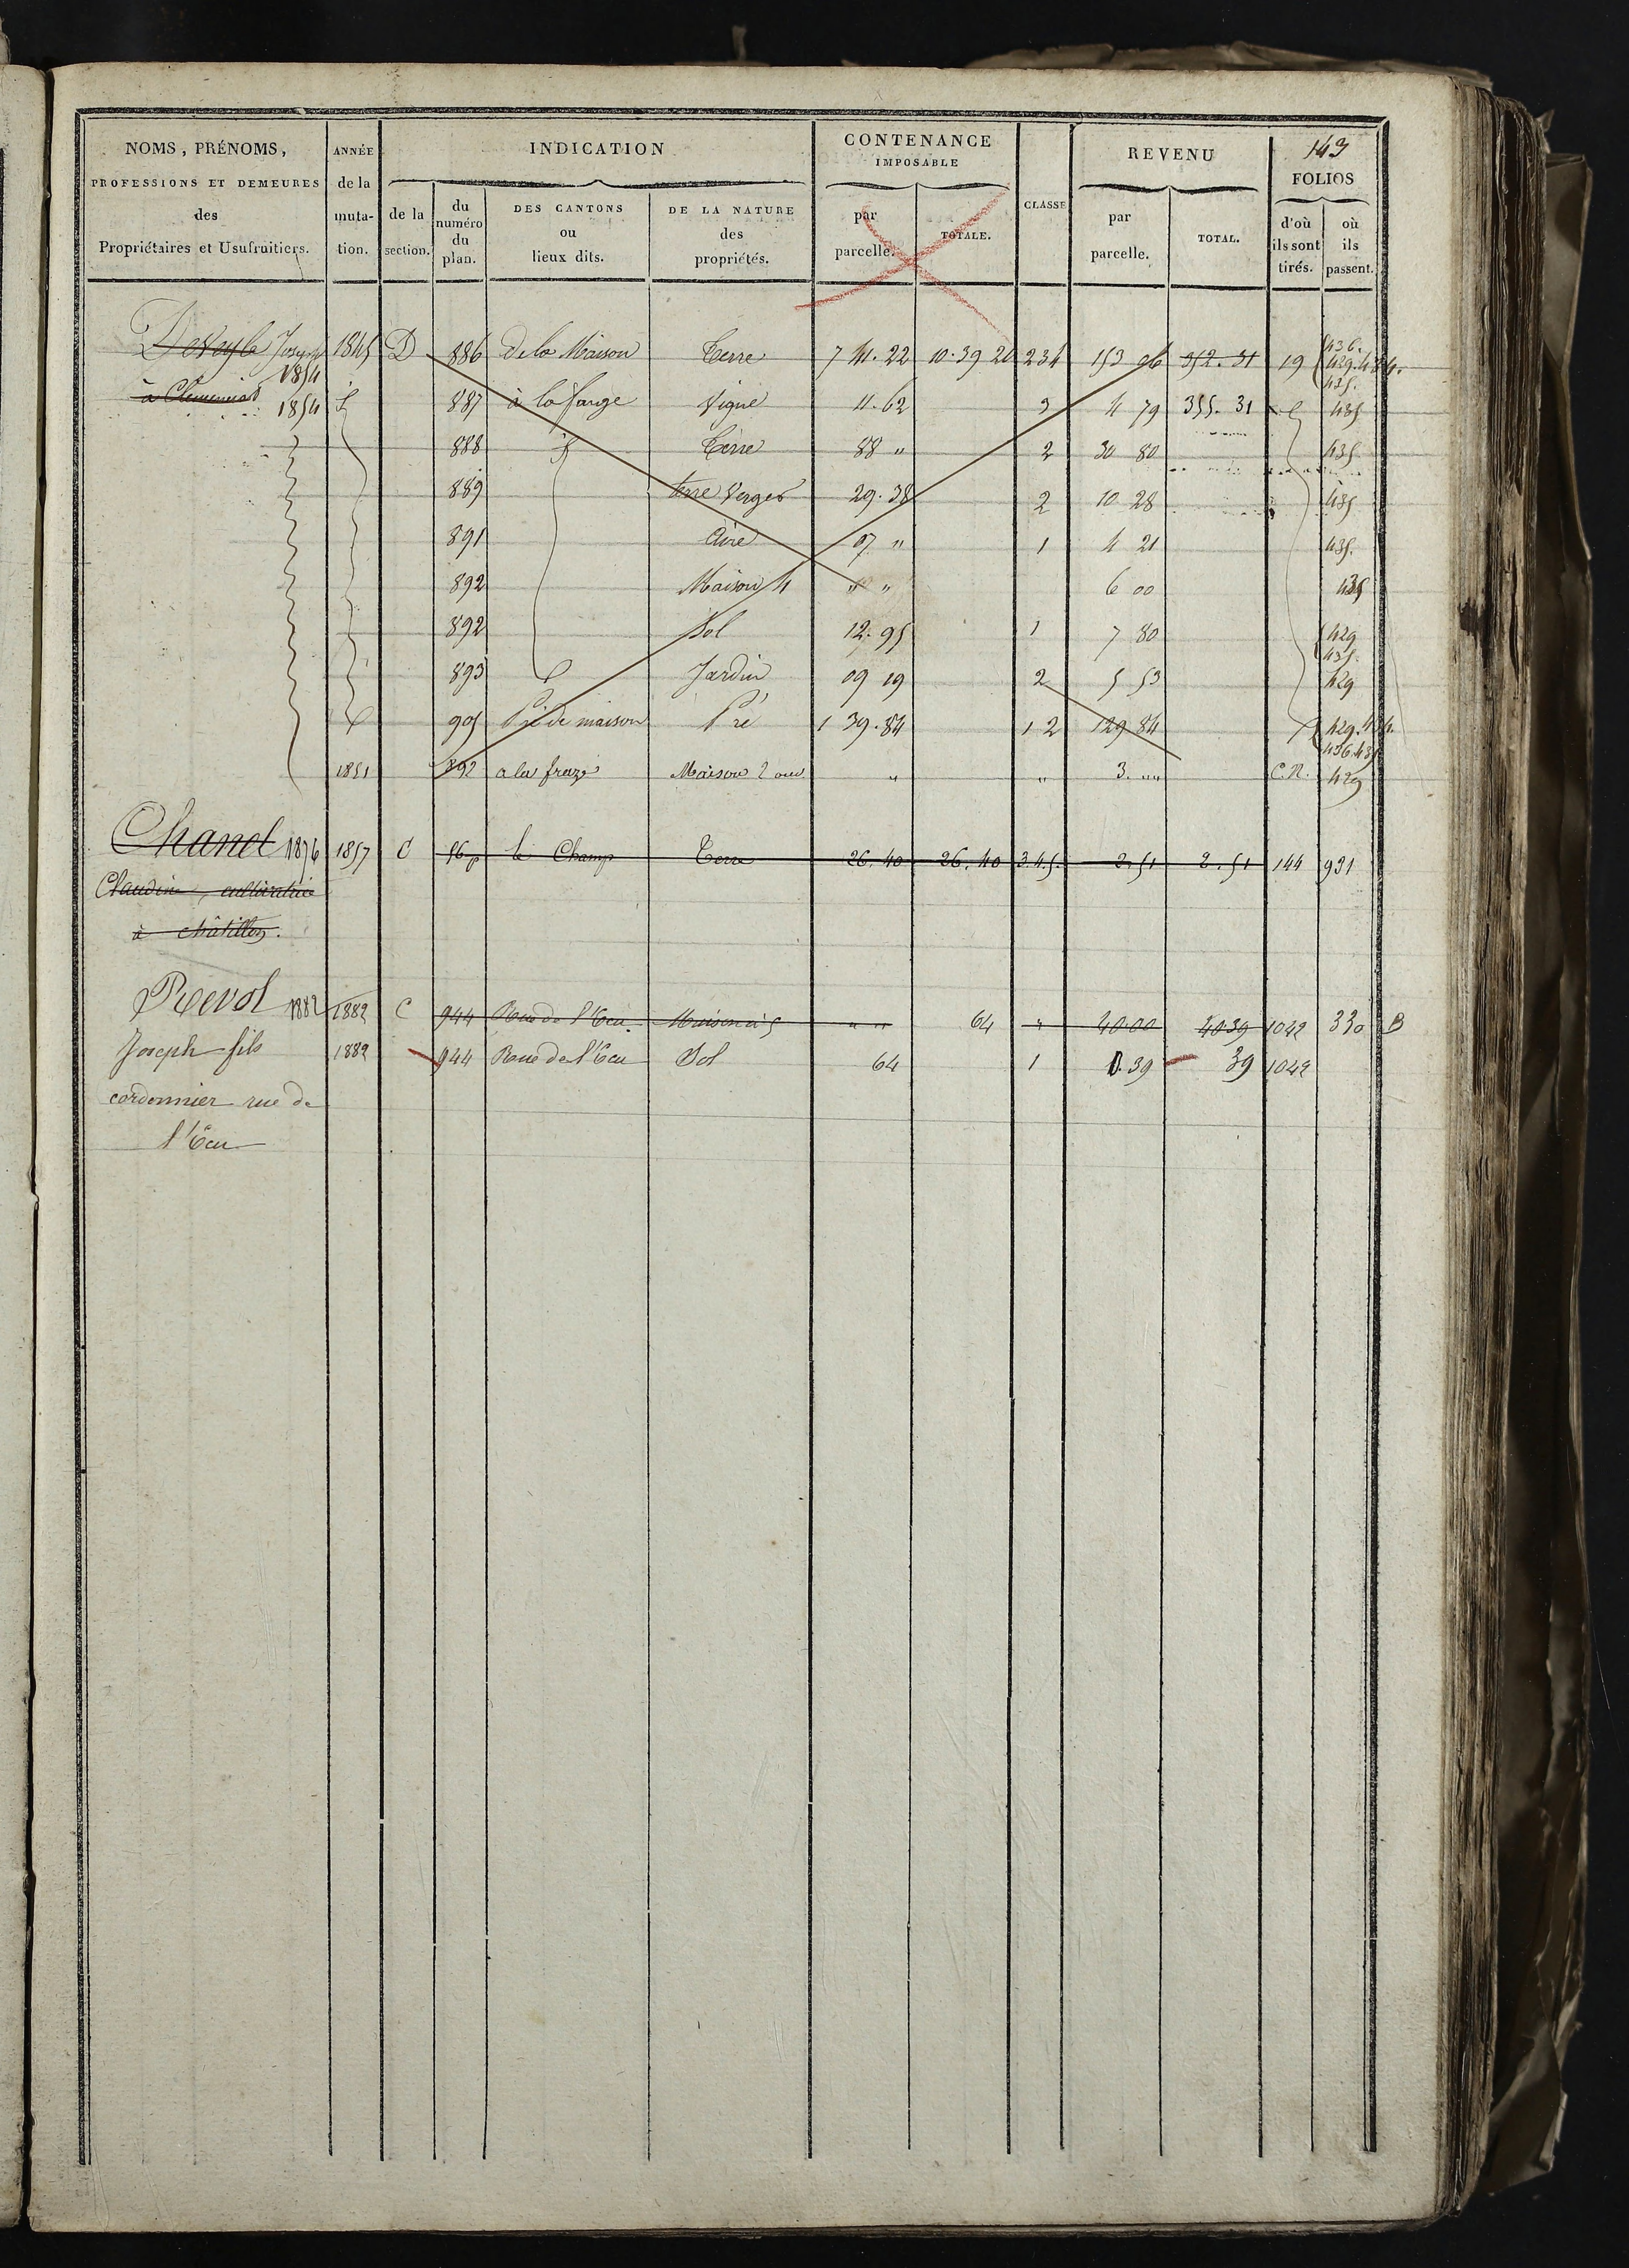 NOMS, PRÉNOMS, ANNÉE INDICATION CONTENANCE REVENU 143
IMPOSABLE
PROFESSIONS ET DEMEURES de la FOLIOS
des muta- de la du numéro du plan. DES CANTONS ou lieux dits. DE LA NATURE des propriétés. par parcelle. TOTALE. CLASSE par parcelle. TOTAL. d'où ils sont tirés. où ils passent.
Propriétaires et Usufruitiers. tion. section.
Joseph 1845 D 886 de la Maison Terre 7 41.22 10.39 20 234 153 06 352.31 19 436. 429. 434. 435.
1854
à 1854 887 à la farge Vigne 11.62 3 4 79 355.31 435
888 Terre 88 " 2 30 80 435.
889 terre Verger 29.38 2 10 28 435
891 Aire 07 " 1 4 21 435.
892 Maison 4 " " 6 00 435
892 Sol 12.95 1 7 80 429 435.
893 Jardin 09 19 2 5 53 429
905 Pré de maison Pré 1 39.84 1 2 129 84 429. 434. 436. 435
1851 892 a la Maison 2 ouv " " 3. "" C.N. 429
Chanel 1876 1857 C 56p le Champ Terre 26.40 26.40 3.4.5. 2.51 2.51 144 931
Claudine, cultivatrice
à châtillon.
Revol 1882 1882 C 944 Rue de l'Ecu. Maison " " 64 " 40 00 40 39 1042 330 B
Joseph fils 1882 944 Rue de l'Ecu Sol 64 1 0.39 39 1042
cordonnier rue de
l'Ecu